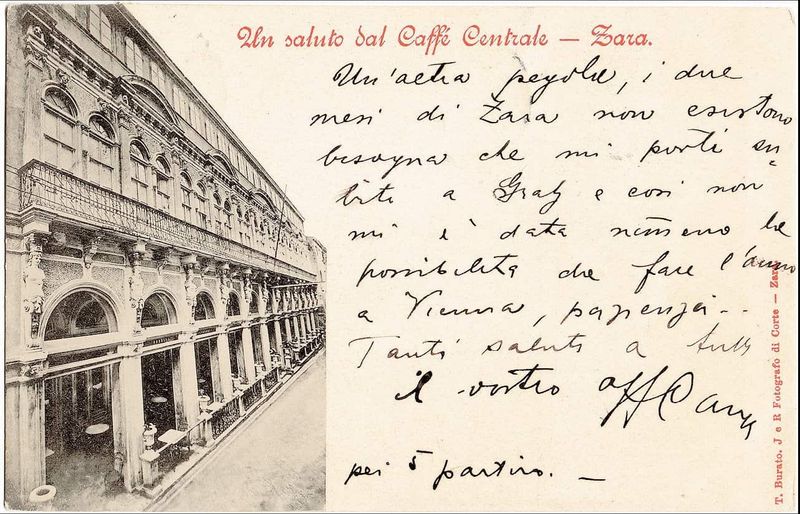 Un saluto dal Caffé Centrale — Zara.
Un'altra , i due
mesi di Zara non esistono
bisogna che mi porti su-
bito a Graz e così non
mi è data nemmeno la
possibilità di fare l'anno
a Vienna, pazienza...
Tanti saluti a tutti
il vostro aff
pei 5 partiro. —
T. Burato. J e R Fotografo di Corte — Zara